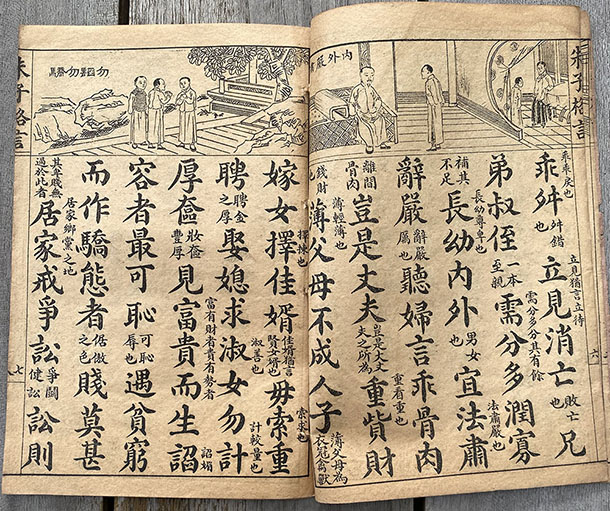 朱子格言
六
內外嚴
乖乖戾也舛舛錯也立見立見猶言立待也消亡敗亡也兄
弟叔侄一本至親需分多潤寡需分多分其有餘
補其不足長幼長幼尊卑也內外男女也宜法肅法肅嚴也
辭嚴辭嚴厲也聽婦言乖骨肉
離間骨肉豈是丈夫豈是大丈夫之所為重重看重也貲財
錢財薄薄輕薄也父母不成人子薄父母為衣冠禽獸
勿諂勿驕
嫁女擇擇揀也佳婿佳婿猶言賢女婿也毋索索求也重
聘聘金之厚娶媳求淑女淑善也勿計計較量也
厚奩妝奩豐厚見富貴富有財者貴有勢者而生諂諂媚
容者最可恥可恥辱也遇貧窮
而作驕態者倨傲之色賤莫甚
其卑賤無過於此者居家居家鄉黨之地戒爭訟爭鬬健訟訟則
朱子格言
七